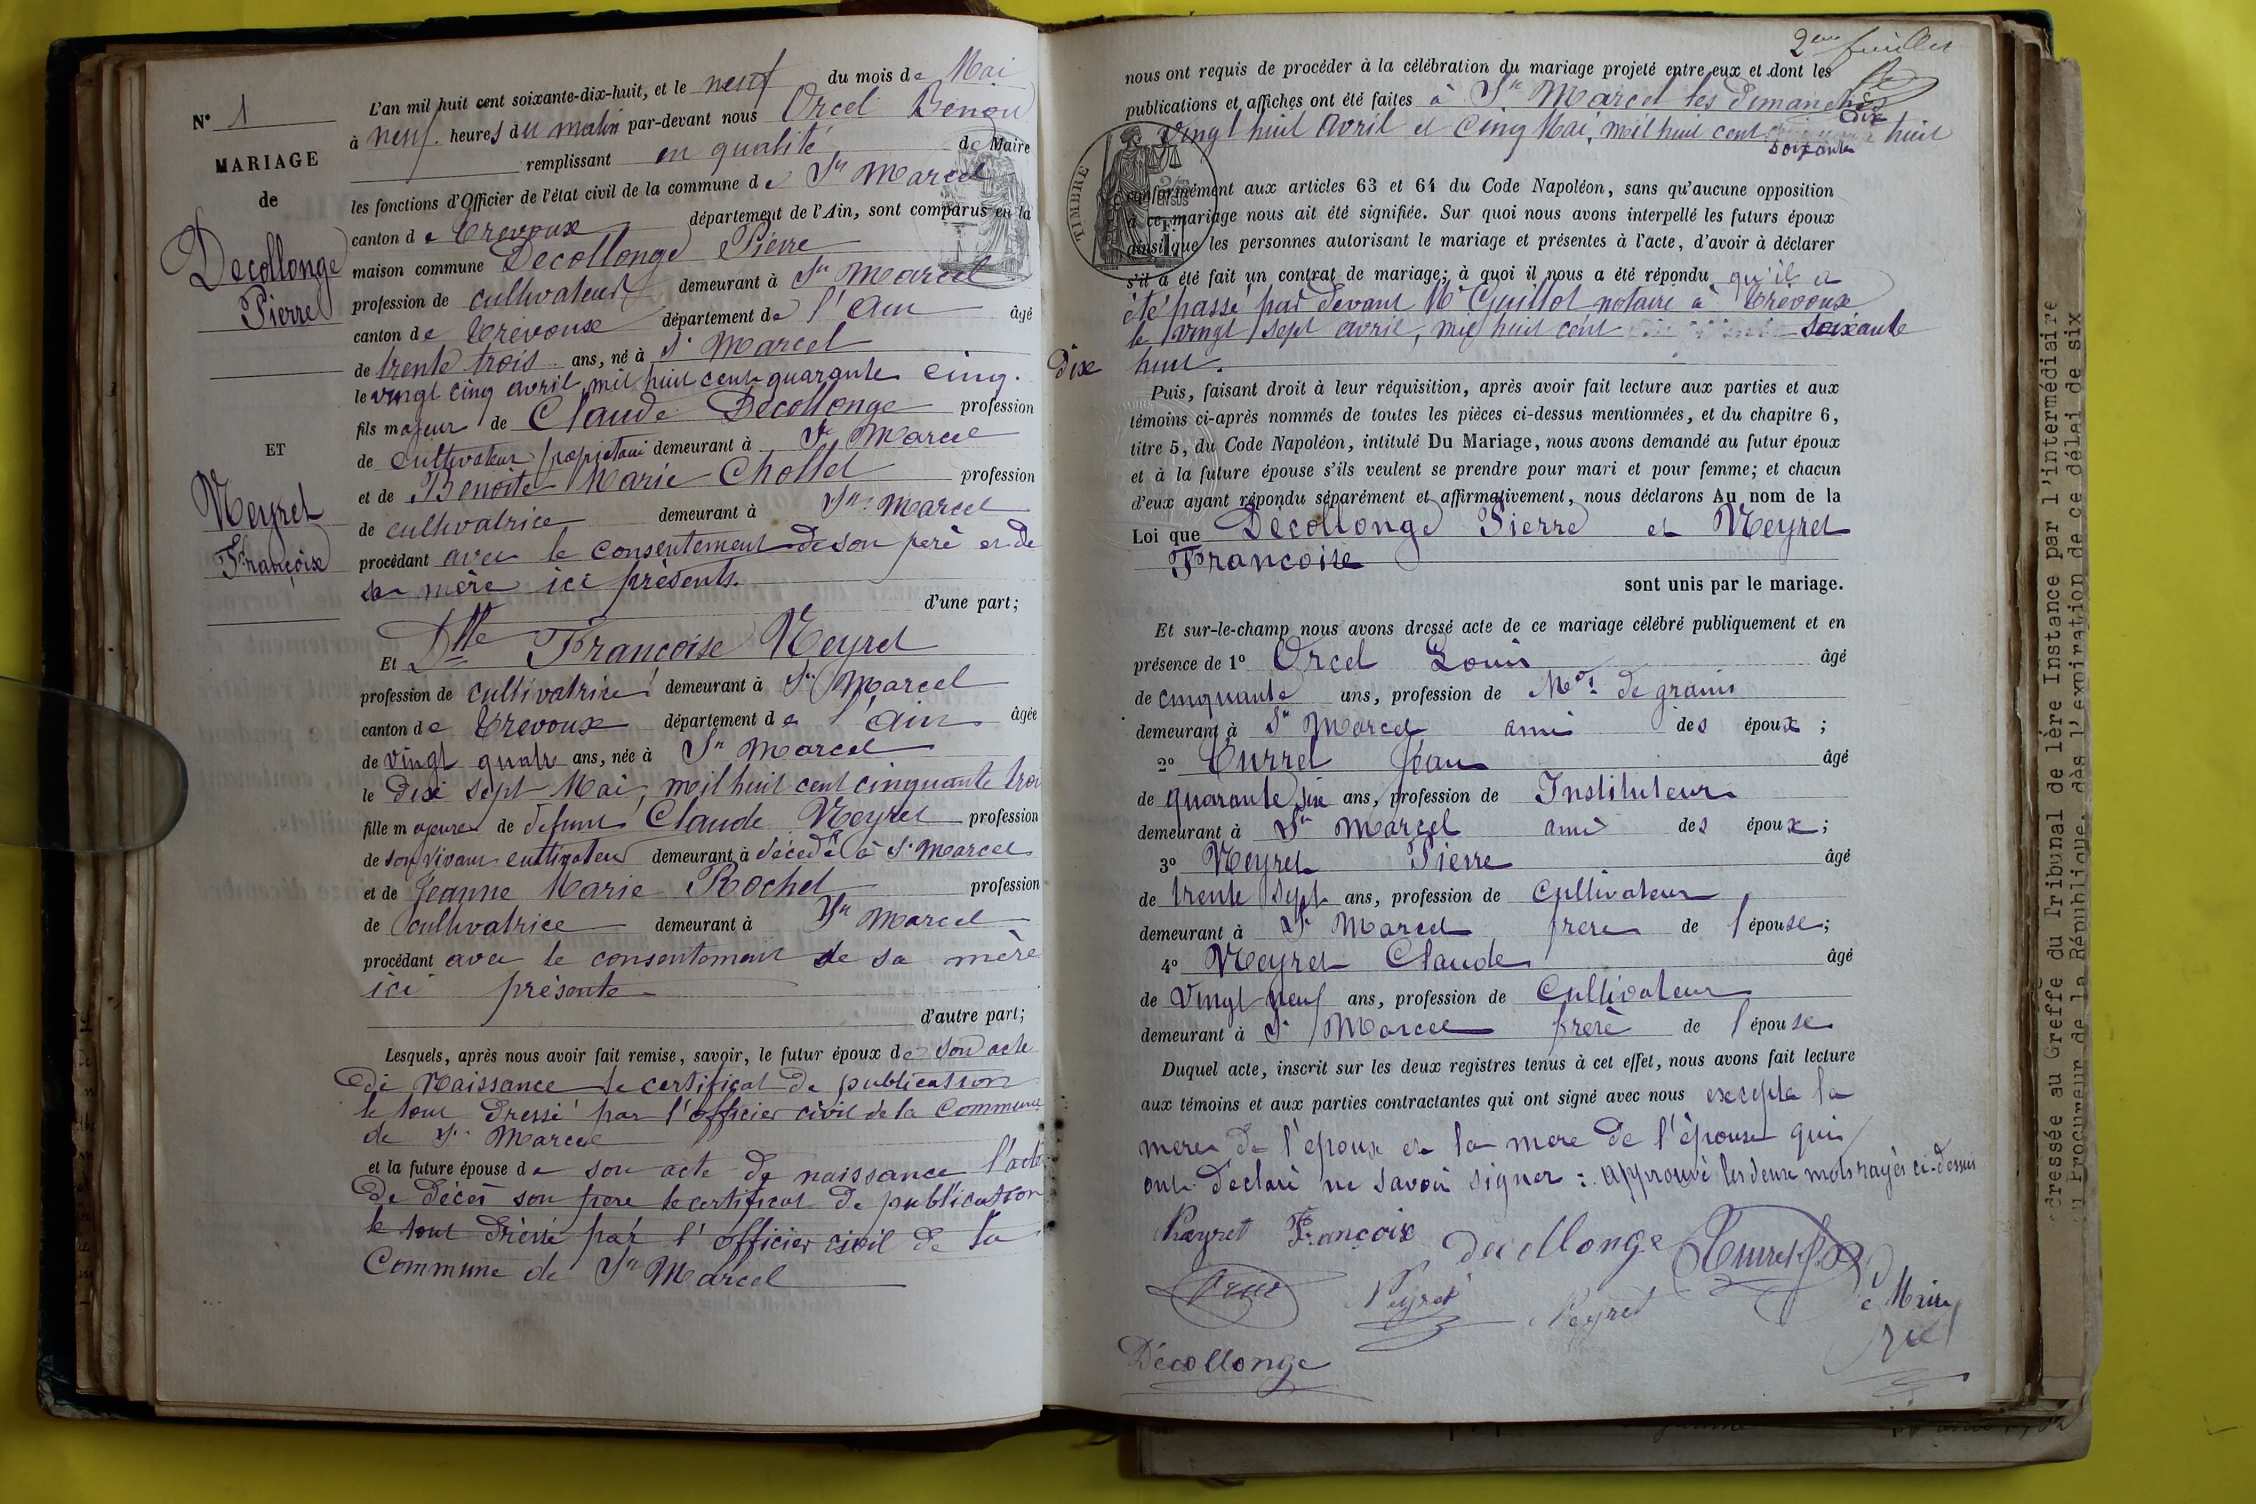 N° 1
MARIAGE
de
Decollonge
Pierre
ET
Neyret
Françoise
L'an mil huit cent soixante-dix-huit, et le neuf du mois de Mai
à neuf heures du matin par-devant nous Orcel Benoit
remplissant en qualité de Maire
les fonctions d'Officier de l'état civil de la commune de St Marcel
canton de Trevoux département de l'Ain, sont comparus en la
maison commune Decollonge Pierre
profession de cultivateur demeurant à St Marcel
canton de Trévoux département de l'Ain âgé
de trente trois ans, né à St Marcel
le vingt cinq avril mil huit cent quarante cinq.
fils majeur de Claude Décollonge profession
de cultivateur propriétaire demeurant à St Marcel
et de Benoite Marie Chollet profession
de cultivatrice demeurant à St Marcel
procédant avec le consentement de son père et de
sa mère ici présents.
d'une part;
Et Dlle Françoise Neyret
profession de cultivatrice demeurant à St Marcel
canton de Trevoux département de l'Ain âgée
de vingt quatre ans, née à St Marcel
le dix sept Mai, mil huit cent cinquante trois
fille majeure de defunt Claude Neyret profession
de son vivant cultivateur demeurant à décédé à St Marcel
et de Jeanne Marie Rochet profession
de cultivatrice demeurant à St Marcel
procédant avec le consentement de sa mère
ici présente
d'autre part;
Lesquels, après nous avoir fait remise, savoir, le futur époux de son acte
de Naissance le certificat de publication
le tout dressé par l'officier civil de la Commune
de St Marcel
et la future épouse de son acte de naissance l'acte
de décès son père le certificat de publication
le tout dressé par l'officier civil de la
Commune de St Marcel
2eme feuillet
nous ont requis de procéder à la célébration du mariage projeté entre eux et dont les
publications et affiches ont été faites à St Marcel les dimanches
vingt huit avril et cinq Mai, mil huit cent soixante dix huit
TIMBRE
conformément aux articles 63 et 64 du Code Napoléon, sans qu'aucune opposition
à ce mariage nous ait été signifiée. Sur quoi nous avons interpellé les futurs époux
ainsi que les personnes autorisant le mariage et présentes à l'acte, d'avoir à déclarer
s'il a été fait un contrat de mariage; à quoi il nous a été répondu qu'il a
été passé par devant Me Guillot notaire à Trévoux
le vingt sept avril, mil huit cent soixante
dix huit.
Puis, faisant droit à leur réquisition, après avoir fait lecture aux parties et aux
témoins ci-après nommés de toutes les pièces ci-dessus mentionnées, et du chapitre 6,
titre 5, du Code Napoléon, intitulé Du Mariage, nous avons demandé au futur époux
et à la future épouse s'ils veulent se prendre pour mari et pour femme; et chacun
d'eux ayant répondu séparément et affirmativement, nous déclarons Au nom de la
Loi que Décollonge Pierre et Neyret
Francoise
sont unis par le mariage.
Et sur-le-champ nous avons dressé acte de ce mariage célébré publiquement et en
présence de 1° Orcel Louis âgé
de cinquante ans, profession de Md de grains
demeurant à St Marcel ami des époux;
2° Curret Jean âgé
de quarante six ans, profession de Instituteur
demeurant à St Marcel ami des époux;
3° Neyret Pierre âgé
de trente sept ans, profession de cultivateur
demeurant à St Marcel frere de l'épouse;
4° Neyret Claude âgé
de vingt neuf ans, profession de Cultivateur
demeurant à St Marcel frere de l'épouse
Duquel acte, inscrit sur les deux registres tenus à cet effet, nous avons fait lecture
aux témoins et aux parties contractantes qui ont signé avec nous excepté la
mere de l'époux et la mere de l'épouse qui
ont déclaré ne savoir signer: approuvé les deux mots rayés ci-dessus
Neyret Françoise decollonge Curret
Orcel Neyret Neyret Le Maire
Orcel
Décollonge
dressée au Greffe du Tribunal de 1ère Instance par l'intermédiaire
du Procureur de la République, dès l'expiration de ce délai de six